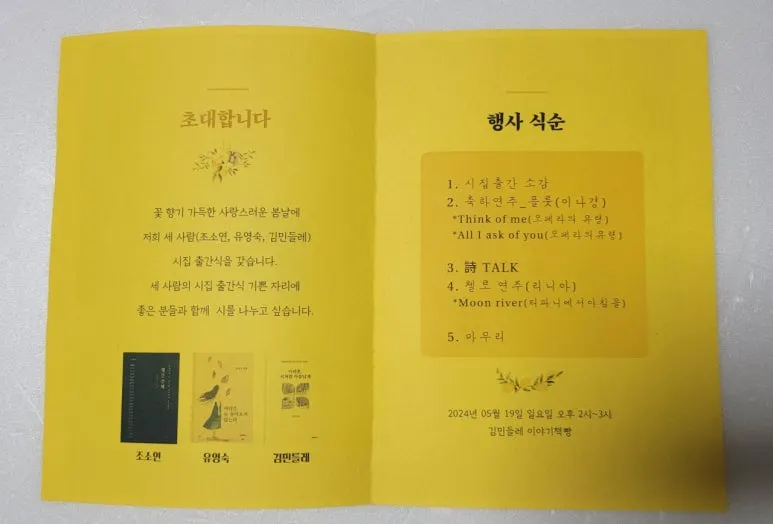 초대합니다
꽃 향기 가득한 사랑스러운 봄날에
저희 세 사람(조소연, 유영숙, 김민들레)
시집 출간식을 갖습니다.
세 사람의 시집 출간식 기쁜 자리에
좋은 분들과 함께 시를 나누고 싶습니다.
조소연
유영숙
김민들레
행사 식순
1. 시집출간 소감
2. 축하연주_플룻(이나경)
*Think of me(오페라의 유령)
*All I ask of you(오페라의유령)
3. 詩 TALK
4. 첼로 연주(리니아)
*Moon river(티파니에서아침을)
5. 마무리
2024년 05월 19일 일요일 오후 2시~3시
김민들레 이야기책빵